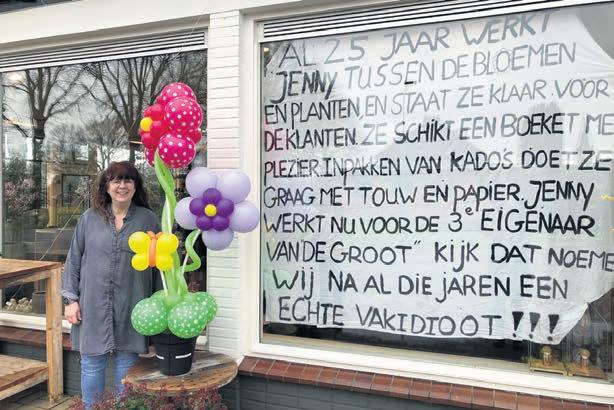 AL 25 JAAR WERKT
JENNY TUSSEN DE BLOEMEN
EN PLANTEN, EN STAAT ZE KLAAR VOOR
DE KLANTEN. ZE SCHIKT EEN BOEKET ME
PLEZIER. INPAKKEN VAN KADO'S DOET ZE
GRAAG MET TOUW EN PAPIER. JENNY
WERKT NU VOOR DE 3e EIGENAAR
VAN "DE GROOT" KIJK DAT NOEME
WIJ NA AL DIE JAREN EEN
ECHTE VAKIDIOOT !!!